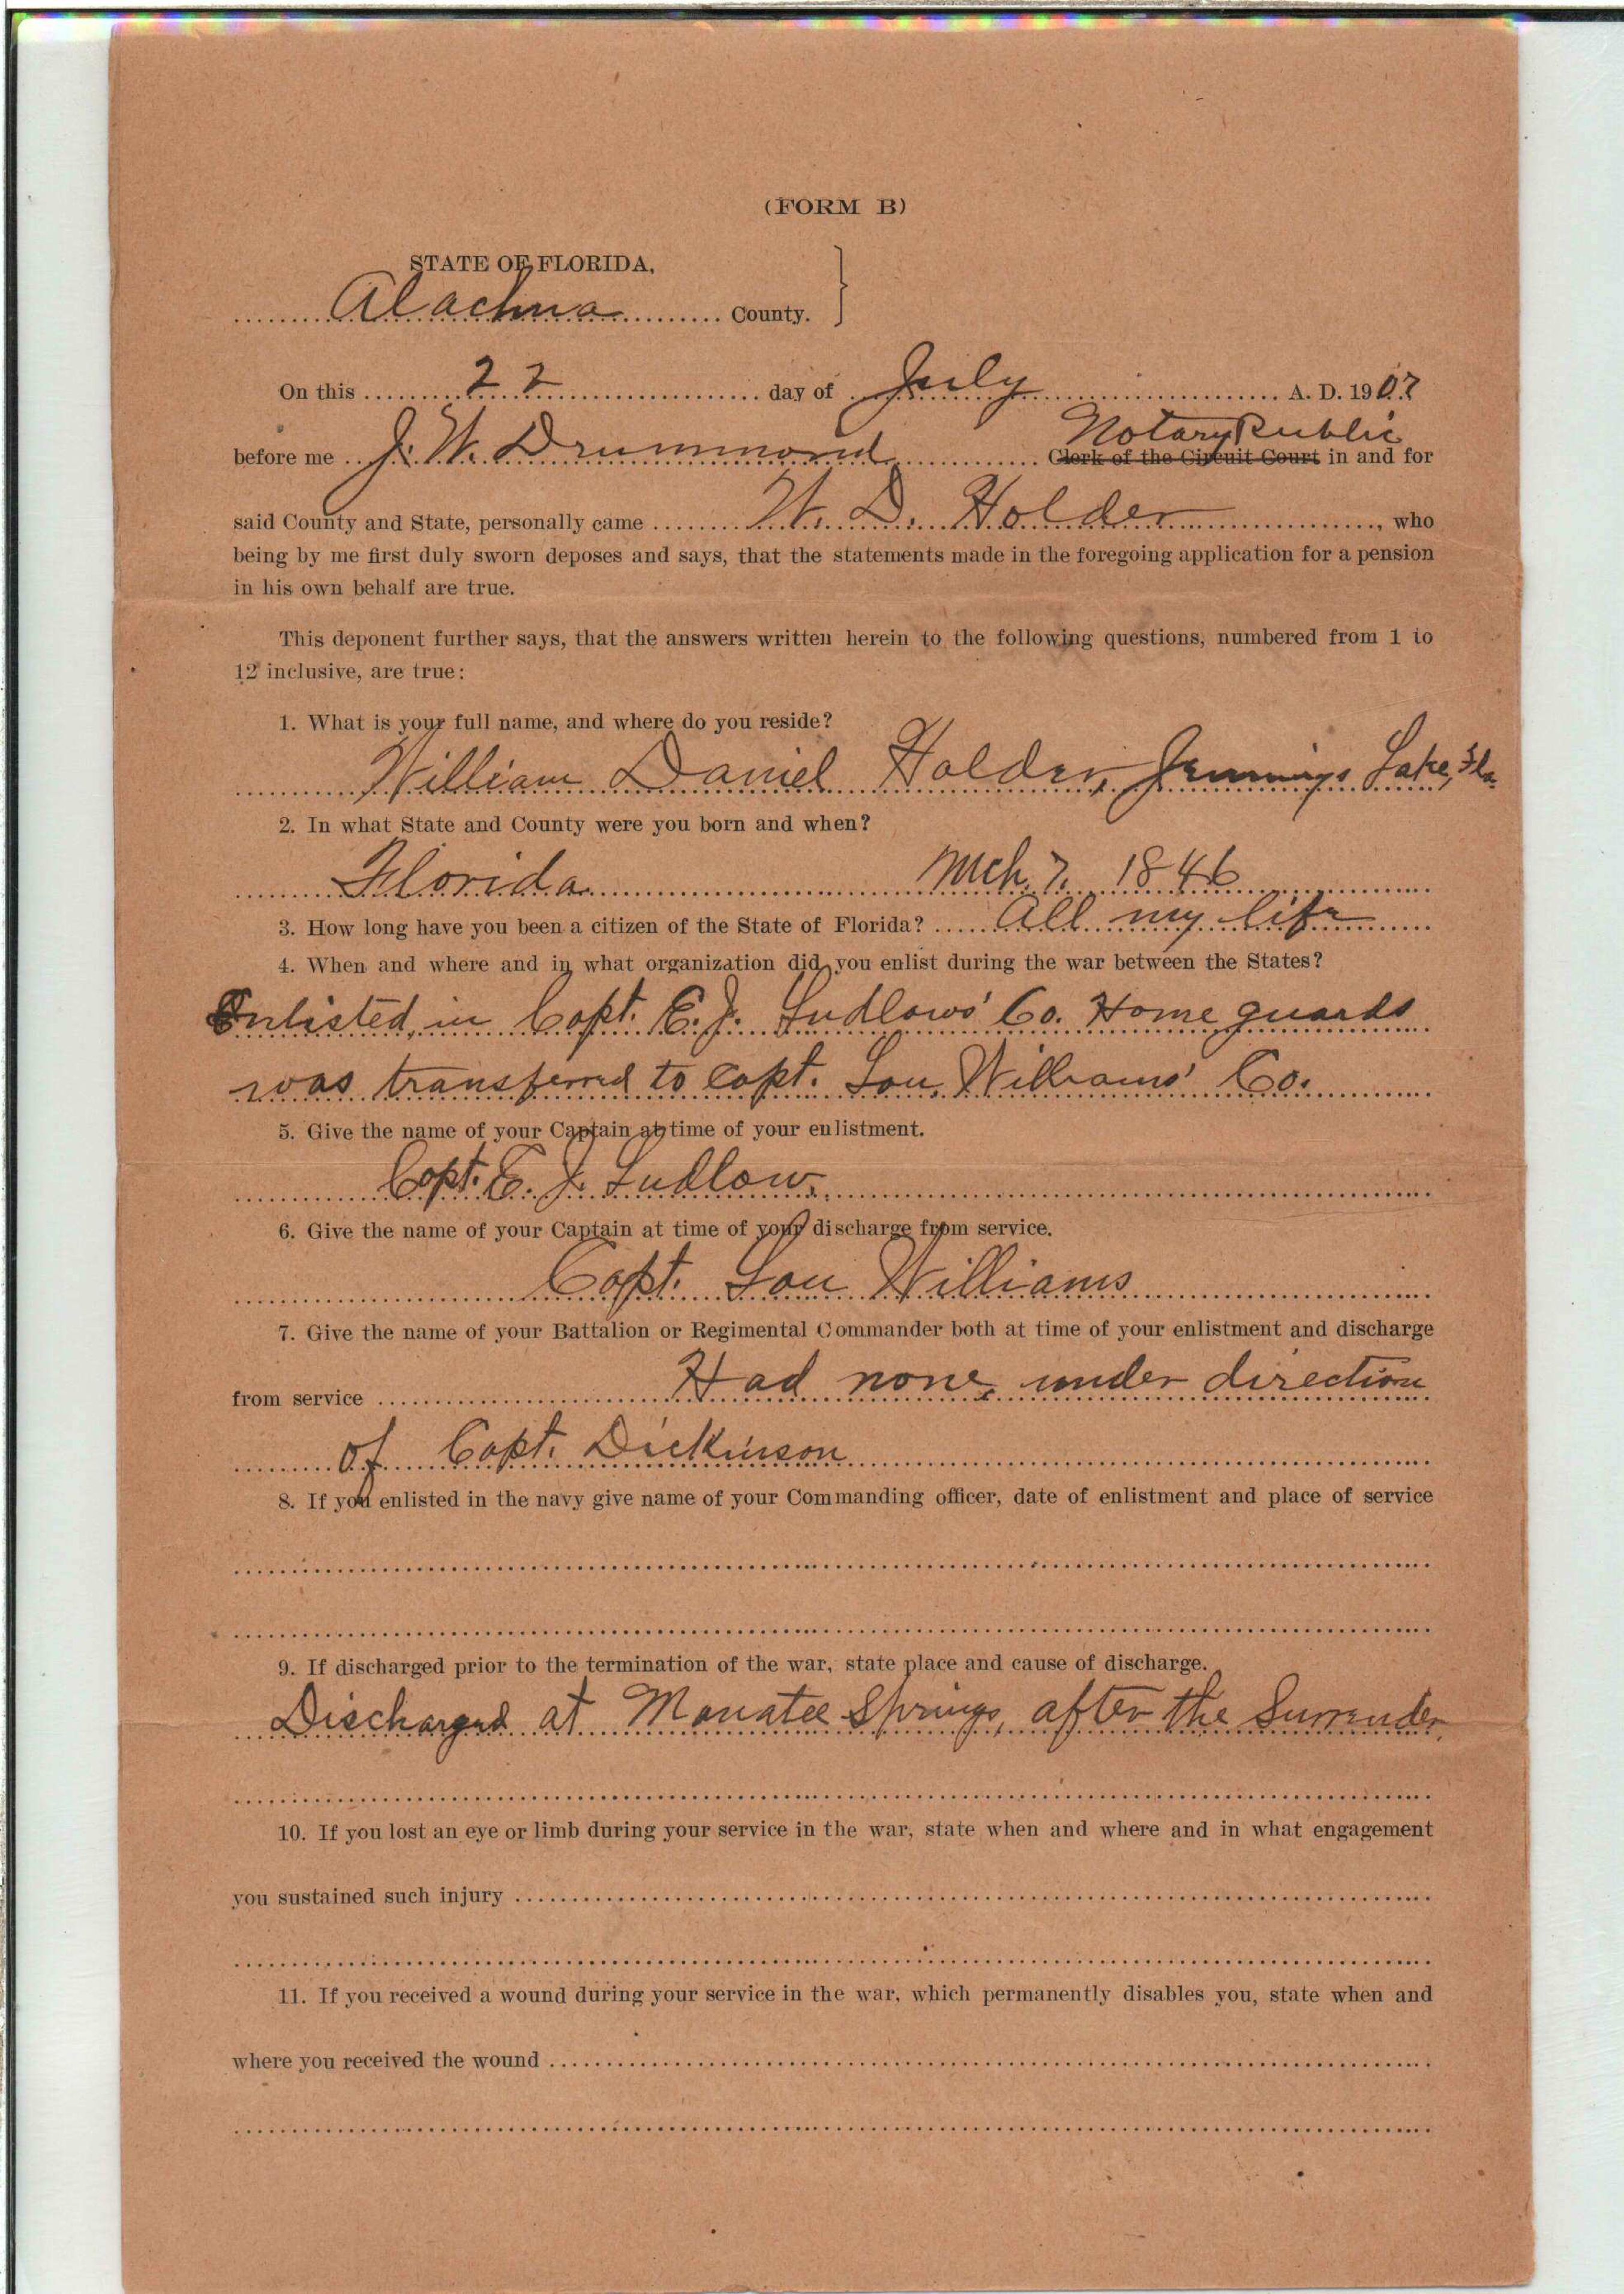 (FORM B)
STATE OF FLORIDA,
Alachua County.
On this 22 day of July A. D. 1907
Notary Public
before me J. W. Drummond Clerk of the Circuit Court in and for
said County and State, personally came W. D. Holder, who
being by me first duly sworn deposes and says, that the statements made in the foregoing application for a pension
in his own behalf are true.
This deponent further says, that the answers written herein to the following questions, numbered from 1 to
12 inclusive, are true:
1. What is your full name, and where do you reside?
William Daniel Holder, Jennings Lake, Fla.
2. In what State and County were you born and when?
Florida Mch. 7. 1846
3. How long have you been a citizen of the State of Florida? All my life
4. When and where and in what organization did you enlist during the war between the States?
Enlisted in Capt. E. J. Ludlows' Co. Home guards
was transferred to Capt. Lou Williams' Co.
5. Give the name of your Captain at time of your enlistment.
Capt. E. J. Ludlow.
6. Give the name of your Captain at time of your discharge from service.
Capt. Lou Williams
7. Give the name of your Battalion or Regimental Commander both at time of your enlistment and discharge
from service Had none, under direction
of Capt. Dickinson
8. If you enlisted in the navy give name of your Commanding officer, date of enlistment and place of service
9. If discharged prior to the termination of the war, state place and cause of discharge.
Discharged at Manatee Springs, after the Surrender.
10. If you lost an eye or limb during your service in the war, state when and where and in what engagement
you sustained such injury
11. If you received a wound during your service in the war, which permanently disables you, state when and
where you received the wound